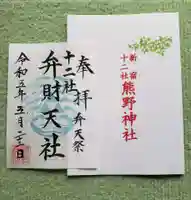 奉拝
弁天祭
十二社
弁財天社
令和五年五月二十一日
新宿
十二社
熊野神社